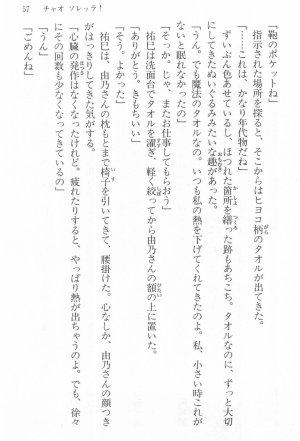 57 チャオ ソレッラ!
「鞄のポケットね」
指示された場所を探ると、そこからはヒヨコ柄のタオルが出てきた。
「………これは、かなり年代物だね」
ずいぶん色あせているし、ほつれた箇所を繕った跡もあちこち。タオルなのに、ずっと大切
にしてきたぬいぐるみみたいな趣があった。
「うん。でも魔法のタオルなの。いつも私の熱を下げてくれてきたのよ。私、小さい時これが
ないと眠れなかったの」
「そっか。じゃ、またお仕事してもらおう」
祐巳は洗面台でタオルを濯ぎ、軽く絞ってから由乃さんの額の上に置いた。
「ありがとう。きもちいい」
「そう。よかった」
祐巳は、由乃さんの枕もとまで椅子を引いてきて、腰掛けた。心なしか、由乃さんの顔つき
がはっきりしてきた気がする。
「心臓の発作はなくなったけれど。疲れたりすると、やっぱり熱が出ちゃうのよ。でも、徐々
にその回数も少なくなってきているの」
「うん」
「ごめんね」